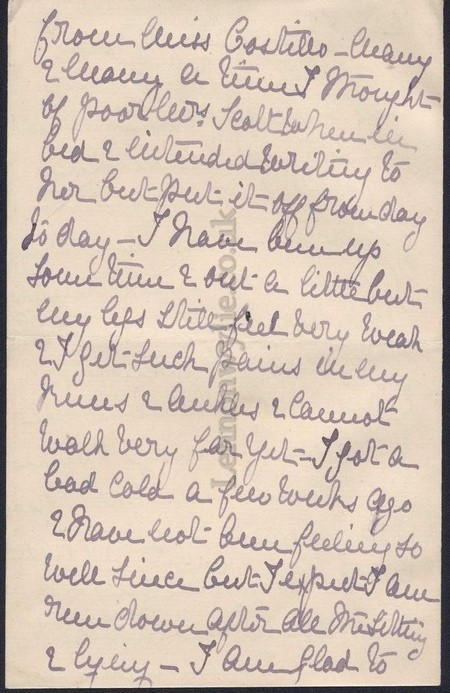 from Miss Costello - Many
& Many a time I thought
of poor Mrs. Scott when in
bed & intended writing to
her but put it off from day
to day - I have been up
some time & out a little but
my legs still feel very weak
& I get such pains in my
knees & ankles & cannot
walk very far yet - I got a
bad cold a few weeks ago
& have not been feeling so
well since but I expect I am
run down after all the sitting
& lying - I am glad to